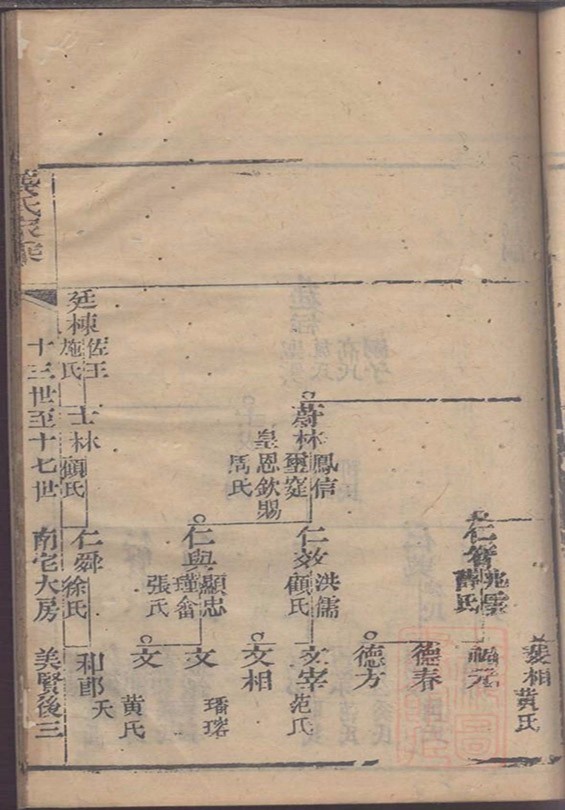 義相
黃氏
仁智
兆雲
薛氏
福元
德春
德方
蔚林
鳳信
璽廷
皇恩欽賜
馬氏
仁效
洪儒
顧氏
文宰
范氏
文相
仁與
顯忠
瑾畬
張氏
文
璠瑢
文
黃氏
廷棟
佐王
施氏
士林
顧氏
仁舜
徐氏
和郎
天
十三世至十七世 南宅大房 美賢後三